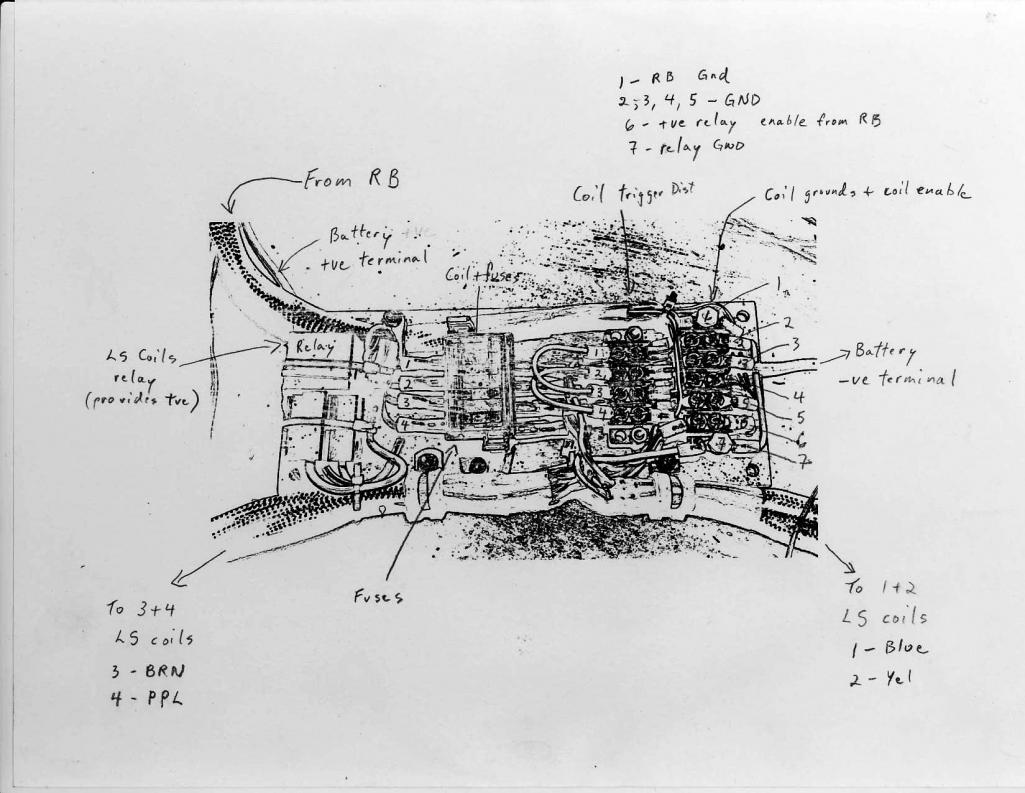 1 - RB Gnd
2,3, 4, 5 - GND
6 - +ve relay enable from RB
7 - relay GND
From RB
Coil trigger Dist
Coil grounds + coil enable
Battery +ve
+ve terminal
Coil + fuses
1
2
3
4
5
6
7
LS Coils
relay
(provides +ve)
Relay
Battery
-ve terminal
1
2
3
4
1
2
3
4
7
Fuses
To 3+4
LS coils
3 - BRN
4 - PPL
To 1+2
LS coils
1 - Blue
2 - Yel